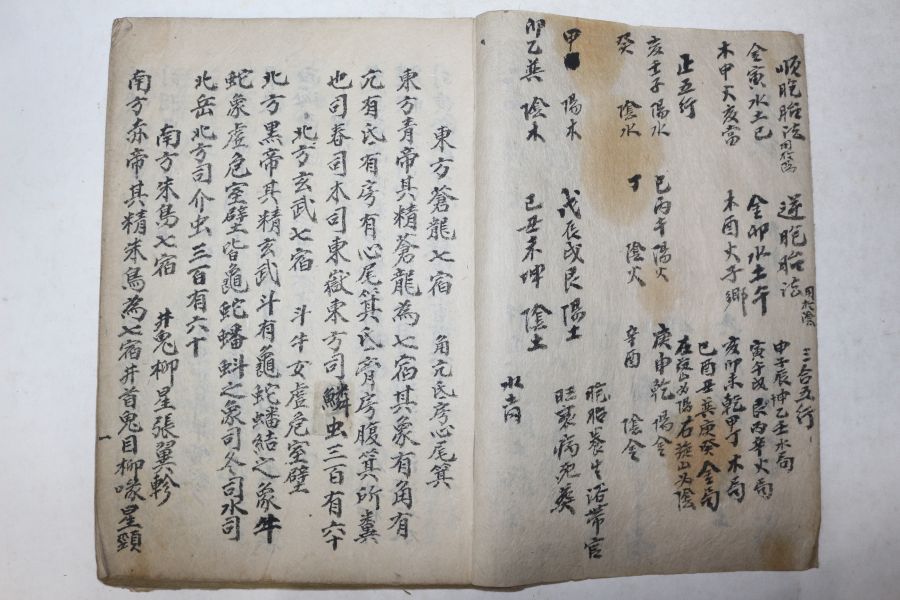 順胞胎法 逆胞胎法 三合五行
金寅水土巳 金卯水土午
木申火亥當 木酉火子鄉
甲子辰坤乙壬水局
寅午戌艮丙辛火局
亥卯未乾甲丁木局
巳酉丑巽庚癸金局
正五行
在旋山為陽右旋山為陰
亥壬子陽水 巳丙午陽火 庚申乾陽金
癸 陰水 丁 陰火 辛酉 陰金
胞胎養生浴帶官
旺衰病死葬
甲 陽木 戊辰戌艮陽土
卯乙巽 陰木 己丑未坤 陰土
水土同
東方蒼龍七宿 角亢氐房心尾箕
東方青帝其精蒼龍為七宿其象有角有
亢有氐有房有心尾箕氐胷房腹箕所糞
也司春司木司東嶽東方司鱗虫三百有六十
北方玄武七宿 斗牛女虛危室壁
北方黑帝其精玄武斗有龜蛇蟠結之象牛
蛇象虛危室壁皆龜蛇蟠蚪之象司冬司水司
北岳北方司介虫三百有六十
南方朱鳥七宿 井鬼柳星張翼軫
南方赤帝其精朱鳥為七宿井首鬼目柳喙星頸